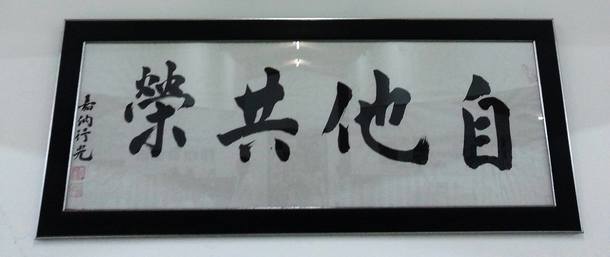 自他共榮
嘉納行光